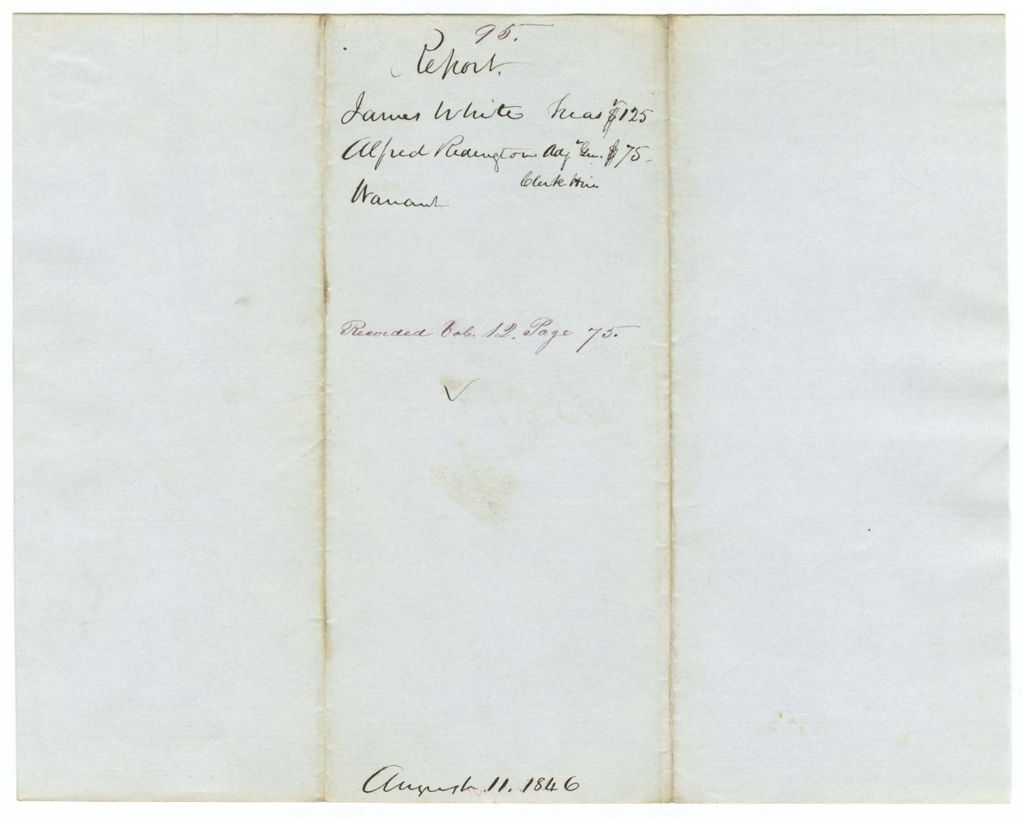 95.
Report.
James White Treasr $125
Alfred Redington Adjt Gen. $75.
Clerk Hire
Warrant
Recorded Vol. 12. Page 75.
August 11. 1846